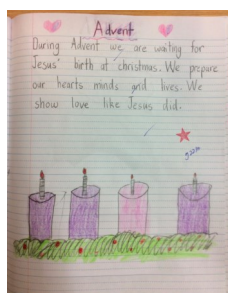 Advent
During Advent we are waiting for
Jesus' birth at christmas. We prepare
our hearts minds and lives. We
show love like Jesus did.